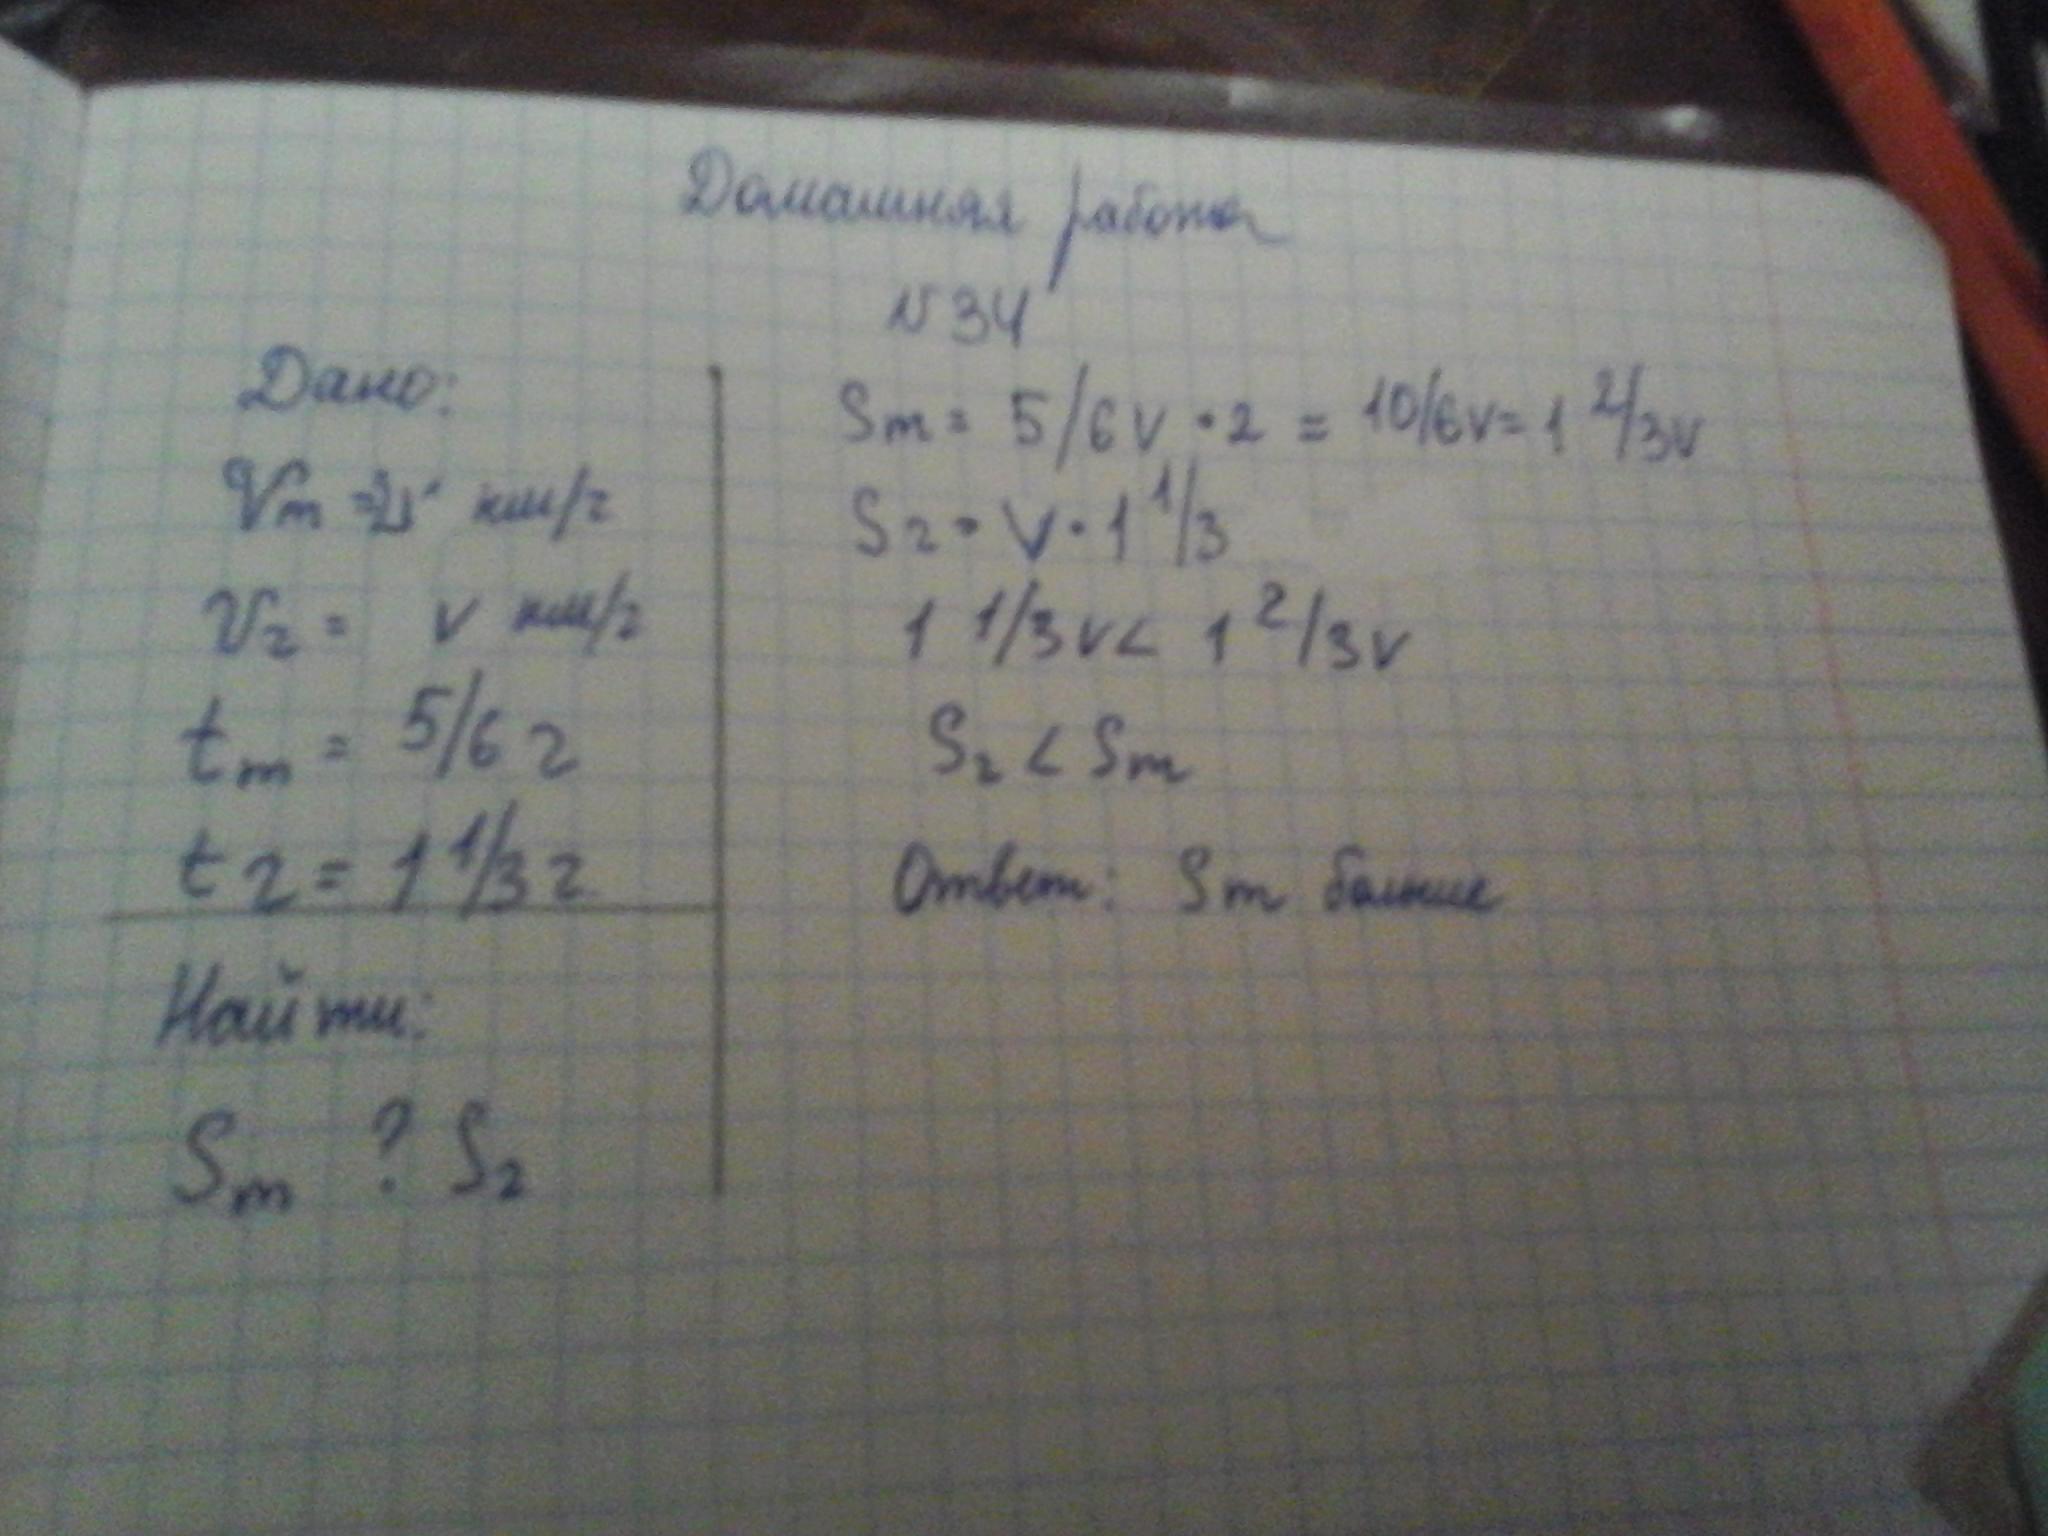 Домашняя работа
№ 34
Дано:
Vm = 2v км/г
V2 = v км/г
tm = 5/6 г
t2 = 1 1/3 г
Найти:
Sm ? S2
Sm = 5/6 v · 2 = 10/6v = 1 2/3v
S2 = v · 1 1/3
1 1/3v < 1 2/3v
S2 < Sm
Ответ: Sm больше